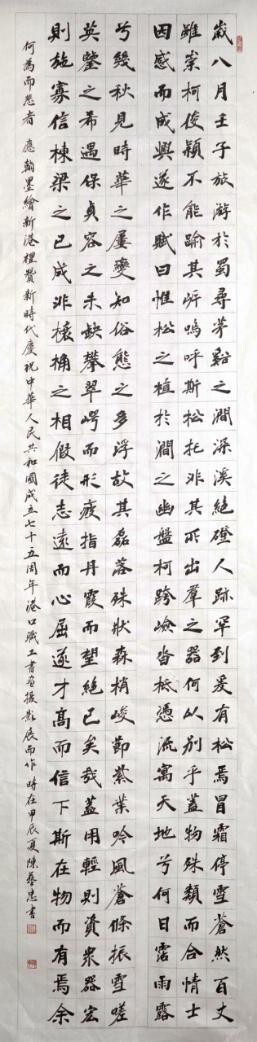 歲八月壬子旅游於蜀尋茅谿之澗深溪絕磴人跡罕到爰有松焉冒霜停雪蒼然百丈
雖崇柯峻穎不能踰其岸嗚呼斯松托非其所出羣之器何以別乎蓋物殊類而合情士
因感而成興遂作賦曰惟松之植於澗之幽盤柯跨嶮沓柢憑流寓天地兮何日霑雨露
兮幾秋見時華之屢變知俗態之多浮故其磊落殊狀森梢峻節紫葉吟風蒼條振雪嗟
英鑒之希遇保貞容之未缺攀翠崿而形疲指丹霞而望絕已矣哉蓋用輕則資衆器宏
則施寡信棟梁之已成非榱桷之相假徒志遠而心屈遂才高而信下斯在物而有焉余
何為而悲者 應翰墨繪新港禮贊新時代慶祝中華人民共和國成立七十五周年港口職工書畫攝影展而作 時在甲辰夏陳 忠書